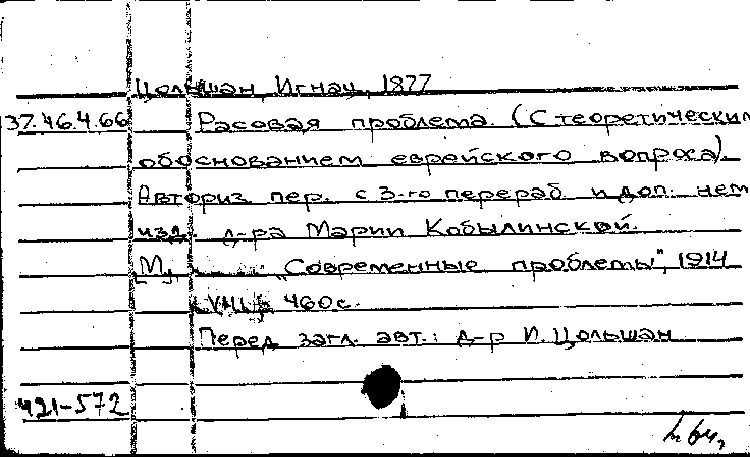 Цольшан, Игнац, 1877
37.46.4.66 Расовая проблема. (С теоретическим
обоснованием еврейского вопроса).
Авториз. пер. с 3-го перераб. и доп. нем.
изд. д-ра Марии Кобылинской.
[М.] "Современные проблемы", 1914
VIII, 460 с.
Перед загл. авт.: д-р И. Цольшан
421-572